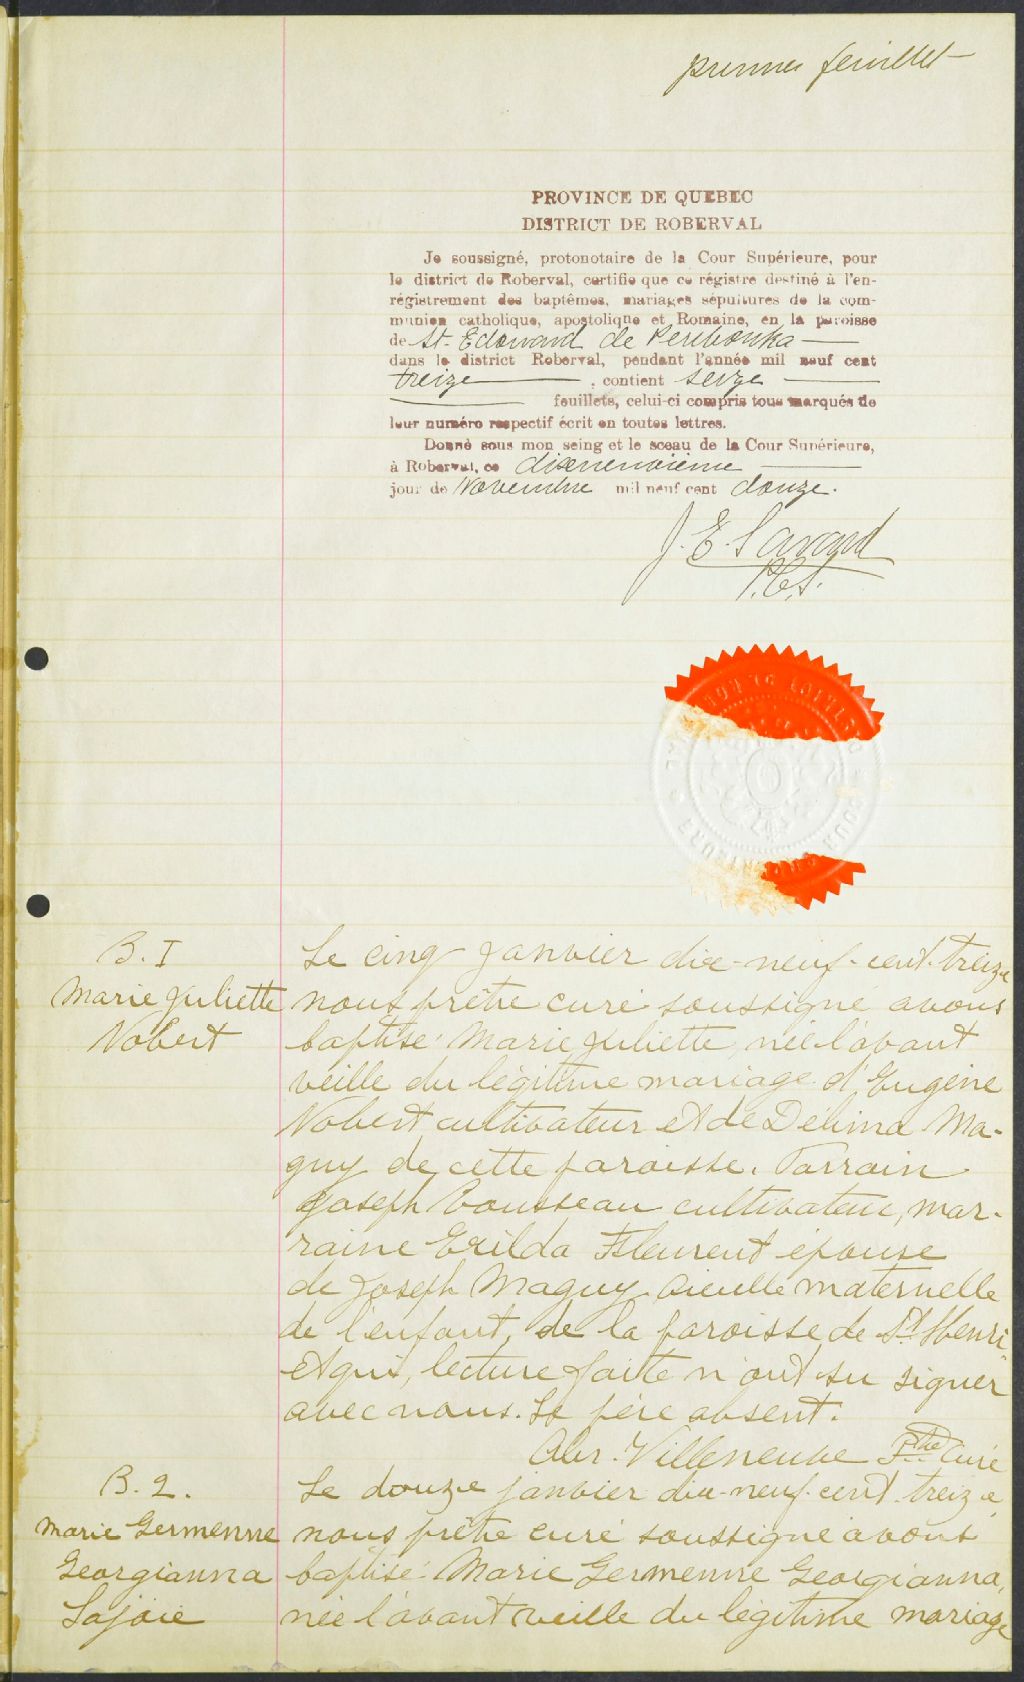 premier feuillet
PROVINCE DE QUEBEC
DISTRICT DE ROBERVAL
Je soussigné, protonotaire de la Cour Supérieure, pour
le district de Roberval, certifie que ce régistre destiné à l'en-
régistrement des baptêmes, mariages sépultures de la com-
munion catholique, apostolique et Romaine, en la paroisse
de St-Edouard de Peribonka
dans le district Roberval, pendant l'année mil neuf cent
treize, contient seize
feuillets, celui-ci compris tous marqués de
leur numéro respectif écrit en toutes lettres.
Donné sous mon seing et le sceau de la Cour Supérieure,
à Roberval, ce dixneuvième
jour de Novembre mil neuf cent douze.
J. E. Savard
P.C.S.
B. I
Marie Juliette
Nobert
Le cinq janvier dix-neuf-cent-treize
nous prêtre curé soussigné avons
baptisé Marie Juliette, née l'avant
veille du légitime mariage d'Eugène
Nobert cultivateur et de Délima Ma-
guy de cette paroisse. Parrain
Joseph Cousseau cultivateur, mar-
raine Exilda Fleurent épouse
de Joseph Maguy aieulle maternelle
de l'enfant, de la paroisse de St Henri
et qui, lecture faite n'ont su signer
avec nous. Le père absent.
Abr. Villeneuve Ptre Curé
B. 2.
Marie Germenne
Georgianna
Lajoie
Le douze janvier dix-neuf-cent-treize
nous prêtre curé soussigné avons
baptisé Marie Germenne Georgianna,
née l'avant veille du légitime mariage